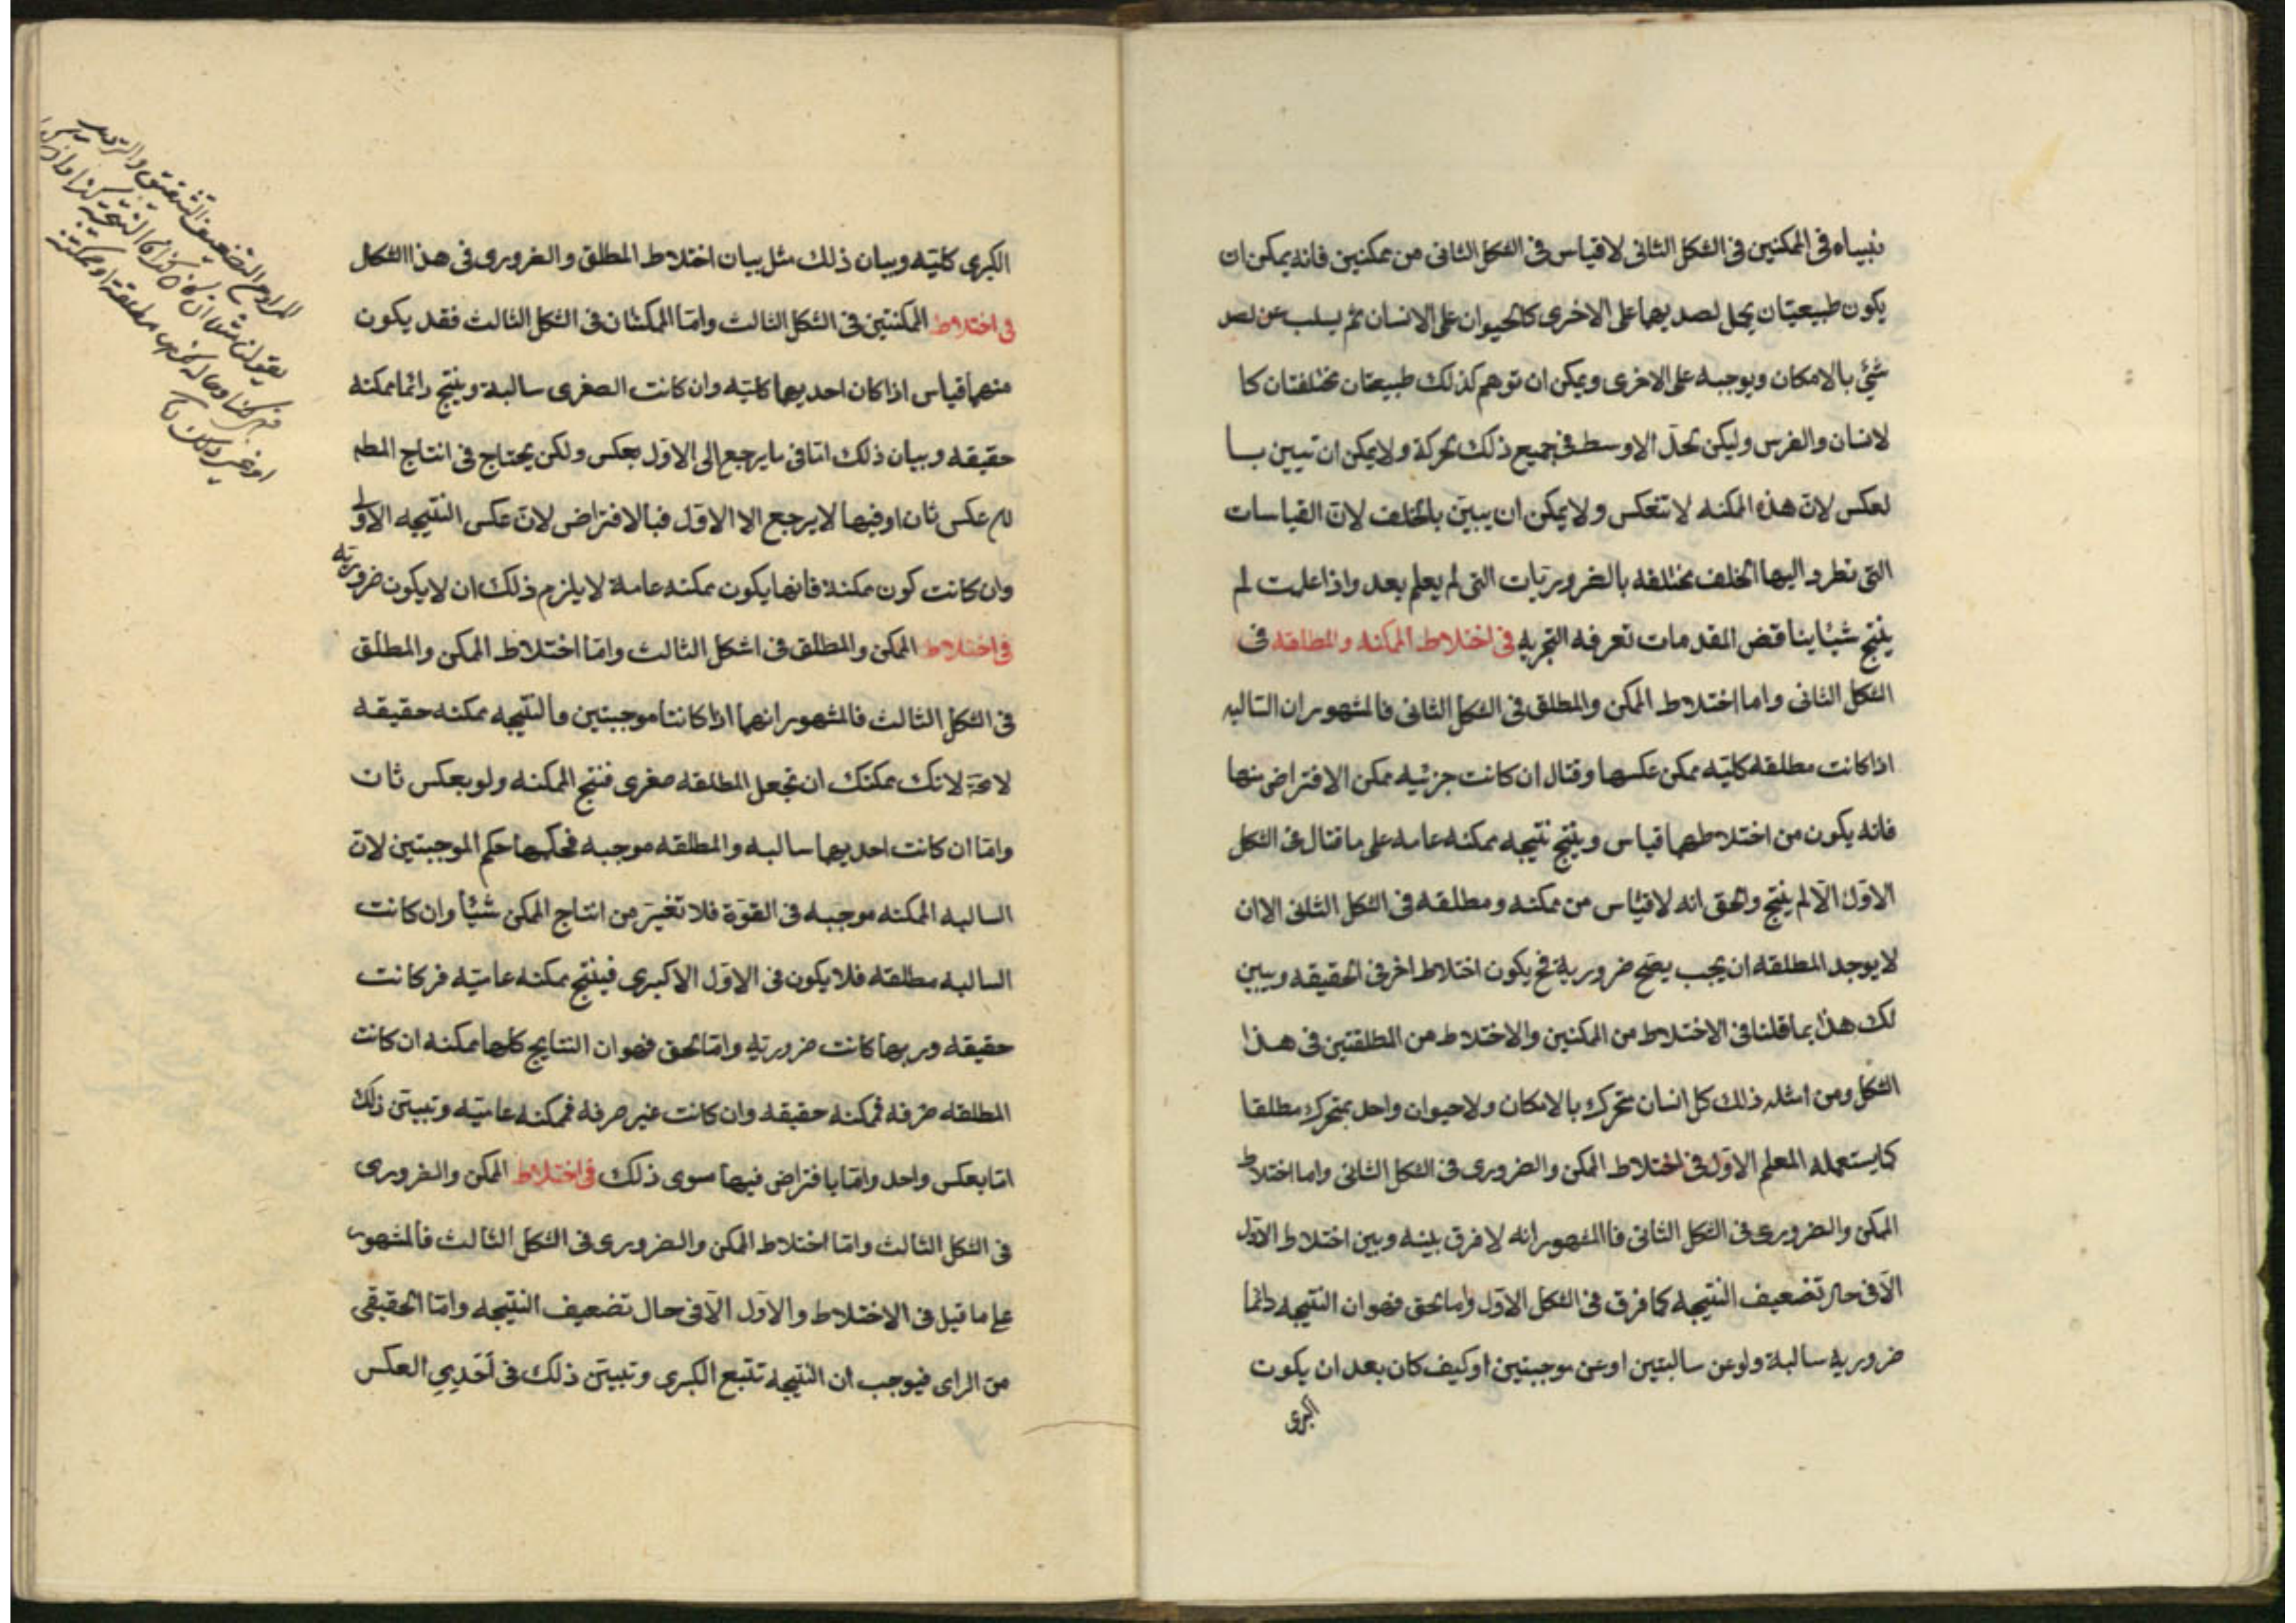 نبيناه فى الممكنين فى الشكل الثانى لاقياس فى الشكل الثانى من ممكنين فانه يمكن ان
يكون طبيعيتان يحمل احديهما على الاخرى كالحيوان على الانسان ثم يسلب عن احد
شئ بالامكان ويوجبه على الاخرى ويمكن ان توهم كذلك طبيعتان مختلفتان كا
لانسان والفرس وليكن الحد الاوسط فى جميع ذلك الحركة ولا يمكن ان تبيين با
لعكس لان هذه الممكنه لا تنعكس ولا يمكن ان يبيّن بالخلف لان القياسات
التى نطرد اليها الخلف مختلفه بالضروريّات التى لم يعلم بعد واذا علمت لم
ينتج شيئا يناقض المقدمات تعرفه التجربه فى اختلاط الممكنه والمطلقه فى
الشكل الثانى واما اختلاط الممكن والمطلق فى الشكل الثانى فالمشهور ان السالبه
اذا كانت مطلقه كليّه ممكن عكسها وقال ان كانت جزئيه ممكن الافتراض منها
فانه يكون من اختلاطهما قياس وينتج نتيجه ممكنه عامه على ما قال فى الشكل
الاوّل الّا لم ينتج والحق انه لا قياس من ممكنه ومطلقه فى الشكل الثانى الا ان
لا يوجد المطلقه ان يجب يصح ضروريه فح يكون اختلاط اخر فى الحقيقه ويبين
لك هذا بما قلنا فى الاختلاط من الممكنين والاختلاط من المطلقتين فى هذا
الشكل ومن امثله ذلك كل انسان متحرك بالامكان ولا حيوان واحد بمتحرك مطلقا
كما يستعمله المعلم الاوّل فى اختلاط الممكن والضرورى فى الشكل الثانى واما اختلاط
الممكن والضرورى فى الشكل الثانى فاالمشهور انه لا فرق بينه وبين اختلاط الاوّل
الّا فى حال تضعيف النتيجه كما فرق فى الشكل الاوّل واما الحق فهو ان النتيجه دائما
ضروريه سالبة ولو عن سالبتين او عن موجبتين او كيف كان بعد ان يكون
الكبرى
الكبرى كليّه وبيان ذلك مثل بيان اختلاط المطلق والضرورى فى هذا الشكل
فى اختلاط الممكنتين فى الشكل الثالث وامّا الممكنتان فى الشكل الثالث فقد يكون
منهما قياس اذا كان احديهما كليّه وان كانت الصغرى سالبة وينتج دائما ممكنه
حقيقه وبيان ذلك امّا فى ما يرجع الى الاوّل بعكس ولكن يحتاج فى انتاج المط
الى عكس ثان او فيها لا يرجع الا الاوّل فبالافتراض لان عكس النتيجه الاولى
وان كانت كون ممكنة فانها يكون ممكنه عامة لا يلزم ذلك ان لا يكون ضروريّه
فى اختلاط الممكن والمطلق فى اشكل الثالث وامّا اختلاط الممكن والمطلق
فى الشكل الثالث فالمشهور انهما اذا كانتا موجبتين فالنتيجه ممكنه حقيقه
لا محة لانك يمكنك ان تجعل المطلقه صغرى فنتج الممكنه ولو بعكس ثان
وامّا ان كانت احديهما سالبه والمطلقه موجبه فحكمها حكم الموجبتين لان
السالبه الممكنه موجبه فى القوّة فلا تغيّر من انتاج الممكن شيئاً وان كانت
السالبه مطلقه فلا يكون فى الاوّل الا كبرى فينتج ممكنه عاميّه فر كانت
حقيقه وربما كانت ضروريه وامّا الحق فهو ان النتايج كلها ممكنه ان كانت
المطلقه صرفه فممكنه حقيقه وان كانت غير صرفه فممكنه عاميّه وتبيّن ذلك
امّا بعكس واحد وامّا بافتراض فيها سوى ذلك فى اختلاط الممكن والضرورى
فى الشكل الثالث وامّا اختلاط الممكن والضرورى فى الشكل الثالث فالمشهور
على ما قيل فى الاختلاط والاوّل الّا فى حال تضعيف النتيجه وامّا الحقيقى
من الراى فيوجب ان النتيجه تتبع الكبرى وتبيّن ذلك فى احديى العكس
المراد من التضعيف التشقيق والترديد